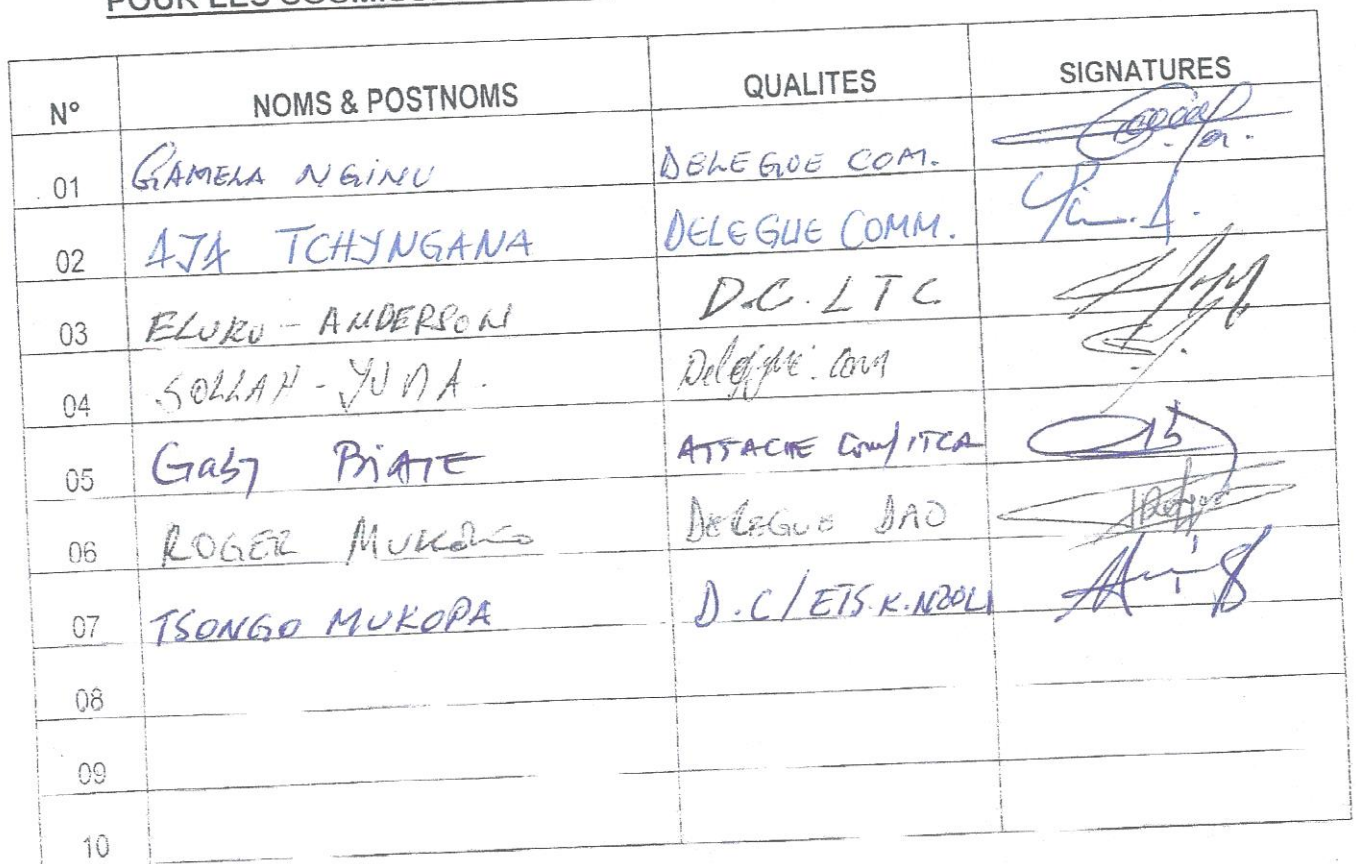 POUR LES
N° NOMS & POSTNOMS QUALITES SIGNATURES
01 GAMELA NGINU DELEGUE COM.
02 AJA TCHYNGANA DELEGUE COMM.
03 ELUKU - ANDERSON D.C. LTC
04 SOLLAH - YUMA. Delegué. Com
05 Gaby BIATE ATTACHE Com/ITCA
06 ROGER DELEGUE
07 TSONGO MUKOPA D.C/ETS.K.NZOLI
08
09
10